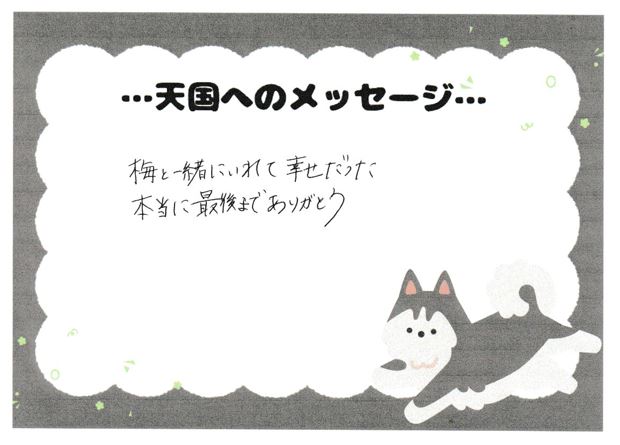 …天国へのメッセージ…
梅と一緒にいれて幸せだった
本当に最後までありがとう